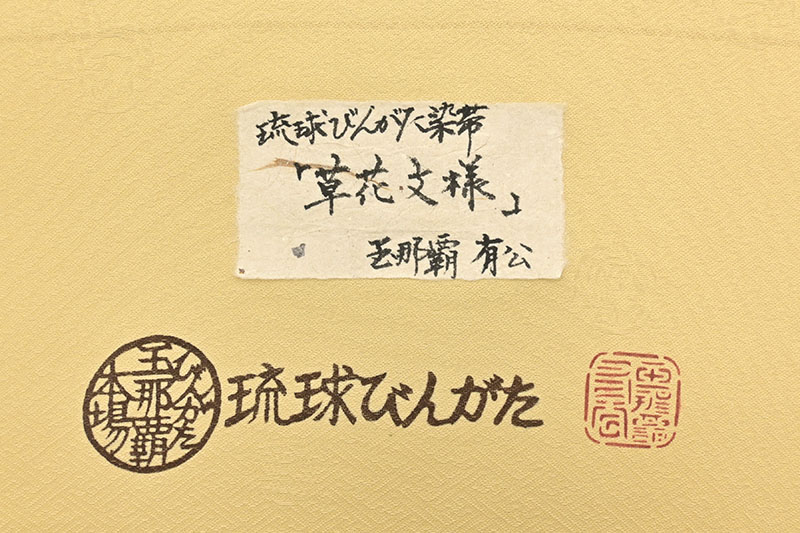 琉球びんがた染帯
「草花文様」
玉那覇 有公
びんがた
玉那覇
本場
琉球びんがた
玉那覇
有公